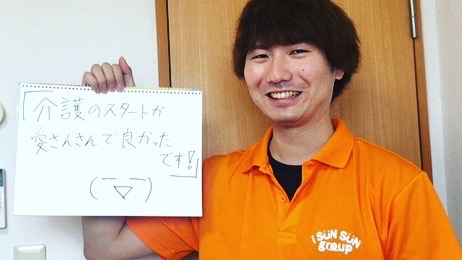 「介護のスタートが
愛さんさんで良かった
です!」
(￣▽￣)
i SÜN SÜN
group